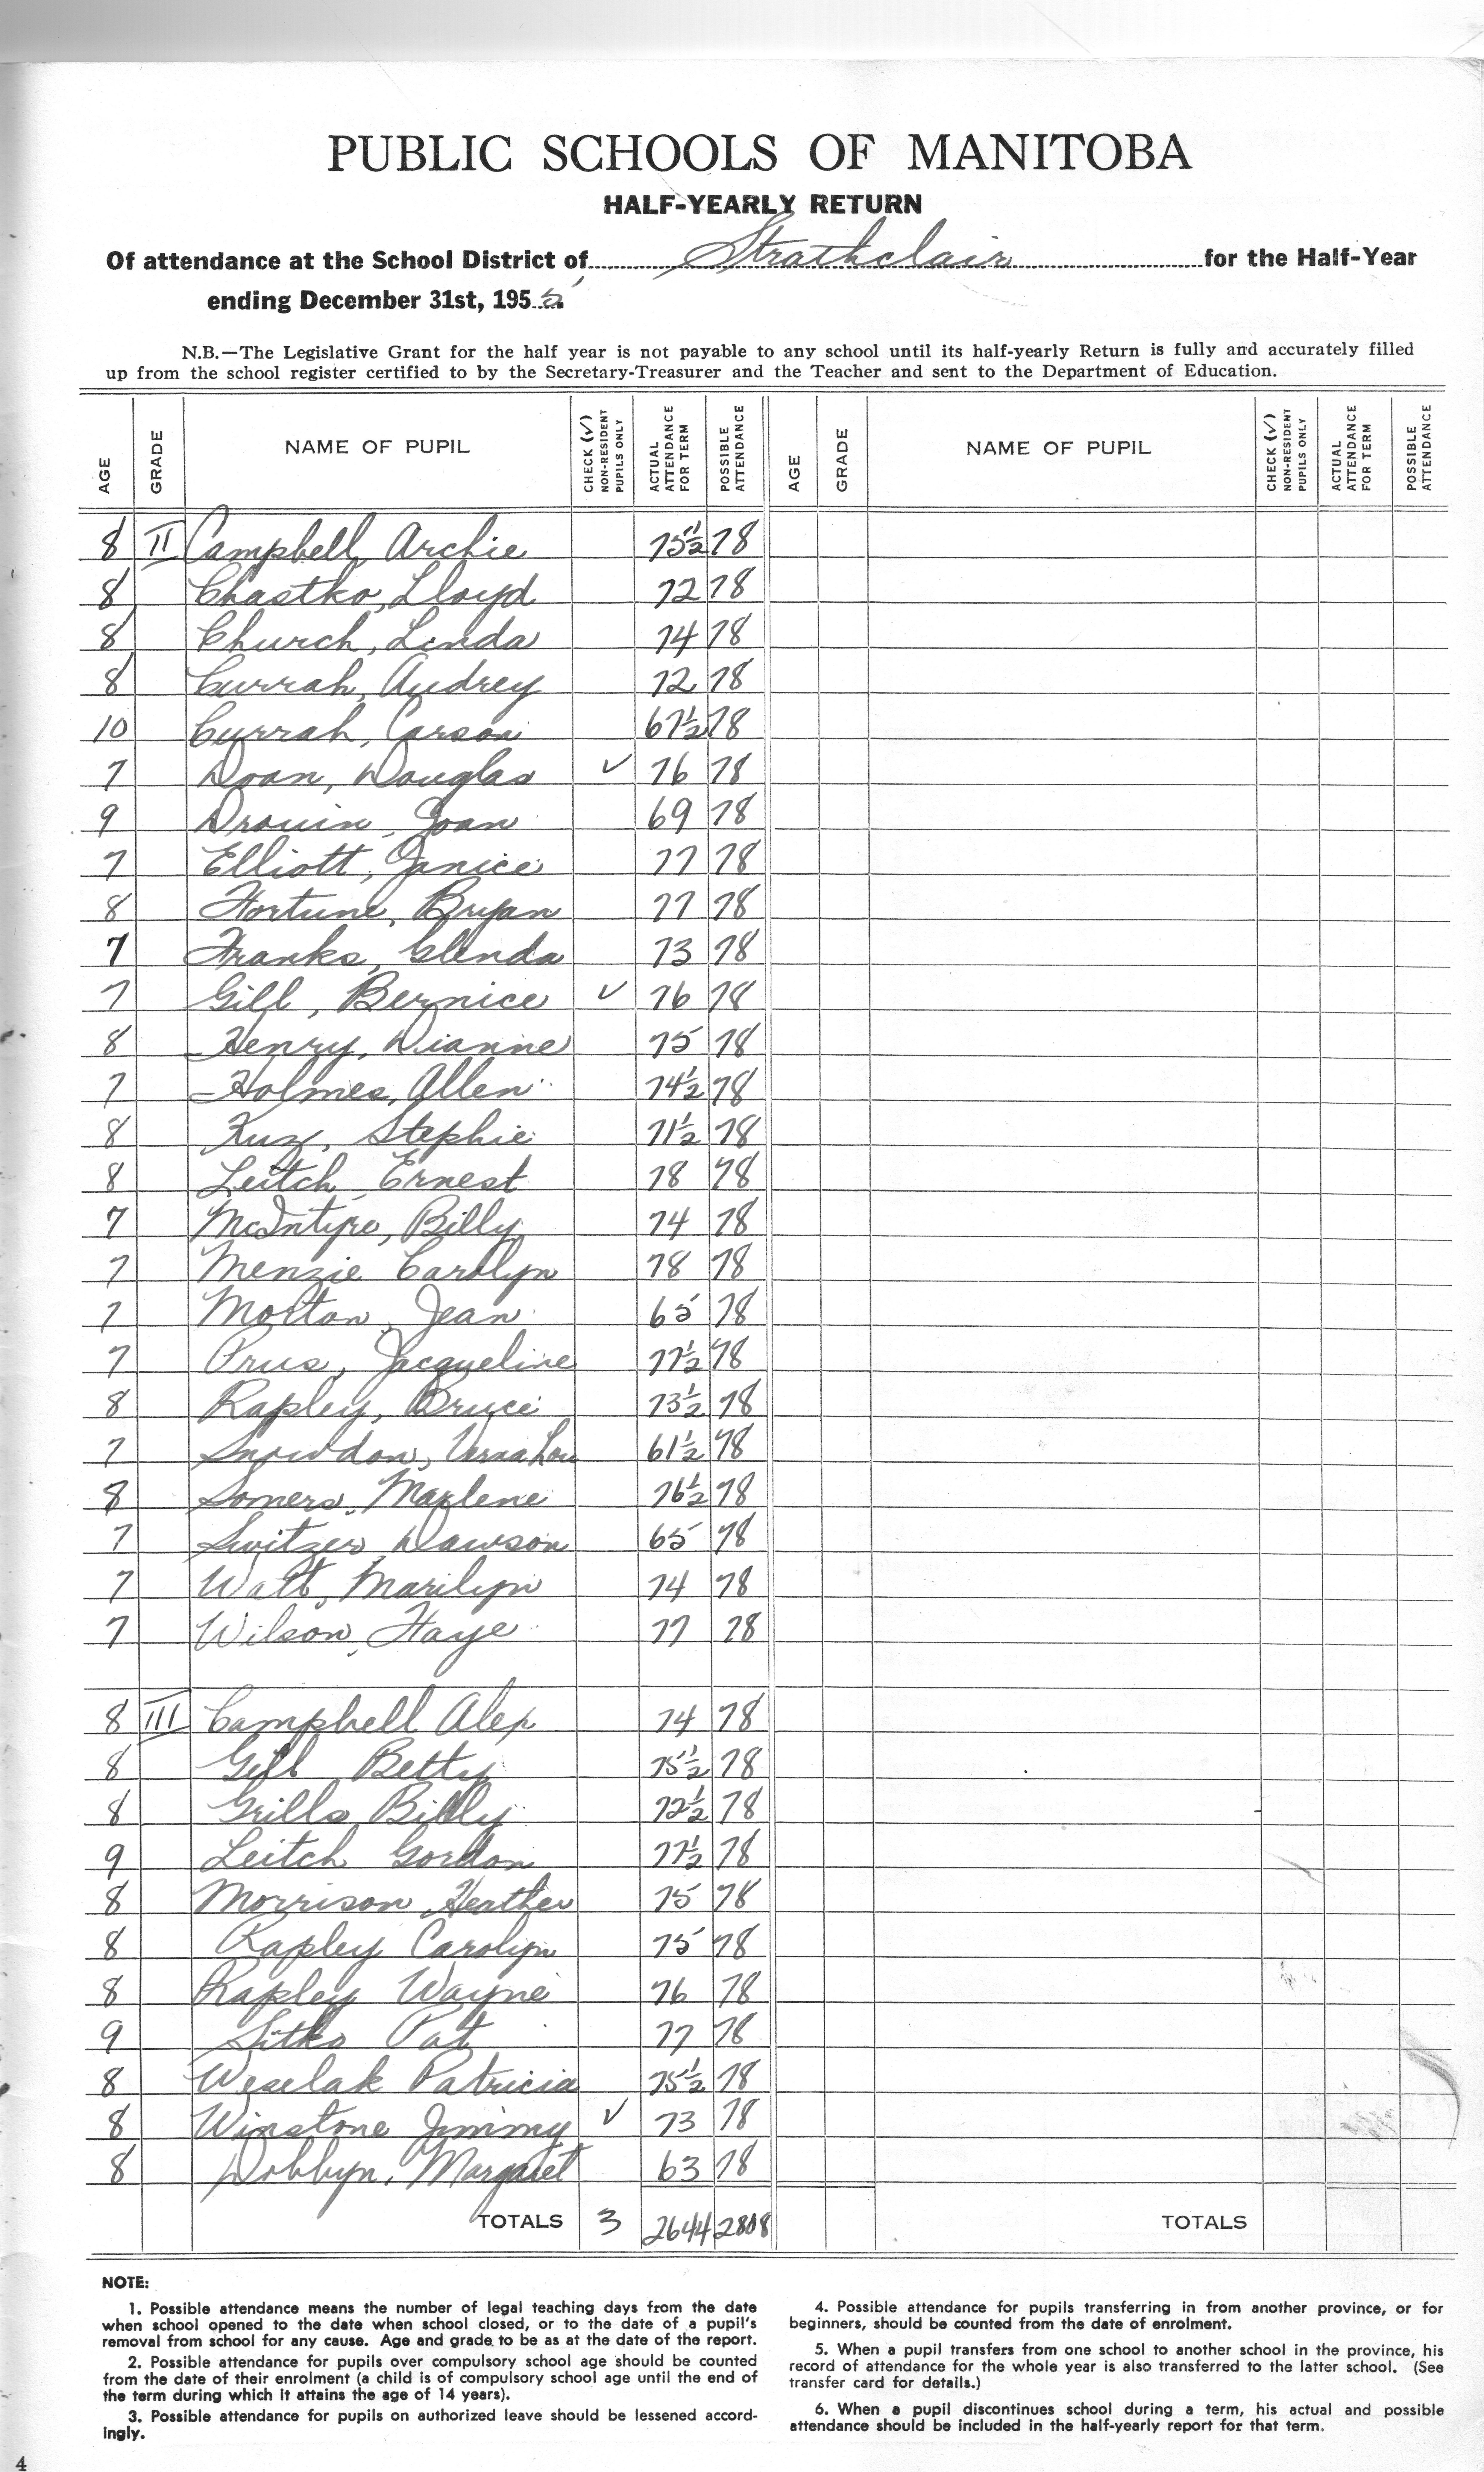 PUBLIC SCHOOLS OF MANITOBA
HALF-YEARLY RETURN
Of attendance at the School District of Strathclair for the Half-Year
ending December 31st, 1955
N.B.—The Legislative Grant for the half year is not payable to any school until its half-yearly Return is fully and accurately filled
up from the school register certified to by the Secretary-Treasurer and the Teacher and sent to the Department of Education.
AGE GRADE NAME OF PUPIL CHECK (√) NON-RESIDENT PUPILS ONLY ACTUAL ATTENDANCE FOR TERM POSSIBLE ATTENDANCE AGE GRADE NAME OF PUPIL CHECK (√) NON-RESIDENT PUPILS ONLY ACTUAL ATTENDANCE FOR TERM POSSIBLE ATTENDANCE
8 II Campbell, Archie 75½ 78
8 Chastko, Lloyd 72 78
8 Church, Linda 74 78
8 Currah, Audrey 72 78
10 Currah, Carson 67½ 78
7 Doan, Douglas ✓ 76 78
9 Drouin, Joan 69 78
7 Elliott, Janice 77 78
8 Fortune, Bryan 77 78
7 Franks, Glenda 73 78
7 Gill, Bernice ✓ 76 78
8 Henry, Dianne 75 78
7 Holmes, Allen 74½ 78
8 Kuz, Stephie 71½ 78
8 Leitch Ernest 78 78
7 McIntyre, Billy 74 78
7 Menzie Carolyn 78 78
7 Morton, Jean 65 78
7 Prus, Jacqueline 77½ 78
8 Rapley, Bruce 73½ 78
7 Snowdon, Verna Lou 61½ 78
8 Somers, Marlene 76½ 78
7 Switzer, Dawson 65 78
7 Watt, Marilyn 74 78
7 Wilson, Faye 77 78
8 III Campbell Alex 74 78
8 Gill Betty 75½ 78
8 Grills Billy 72½ 78
9 Leitch Gordon 77½ 78
8 Morrison, Heather 75 78
8 Rapley Carolyn 75 78
8 Rapley Wayne 76 78
9 Sitko Pat 77 78
8 Weselak Patricia 75½ 78
8 Winstone Jimmy ✓ 73 78
8 Dobbyn, Margaret 63 78
TOTALS 3 2644 2808 TOTALS
NOTE:
1. Possible attendance means the number of legal teaching days from the date
when school opened to the date when school closed, or to the date of a pupil's
removal from school for any cause. Age and grade to be as at the date of the report.
2. Possible attendance for pupils over compulsory school age should be counted
from the date of their enrolment (a child is of compulsory school age until the end of
the term during which it attains the age of 14 years).
3. Possible attendance for pupils on authorized leave should be lessened accord-
ingly.
4. Possible attendance for pupils transferring in from another province, or for
beginners, should be counted from the date of enrolment.
5. When a pupil transfers from one school to another school in the province, his
record of attendance for the whole year is also transferred to the latter school. (See
transfer card for details.)
6. When a pupil discontinues school during a term, his actual and possible
attendance should be included in the half-yearly report for that term.
4